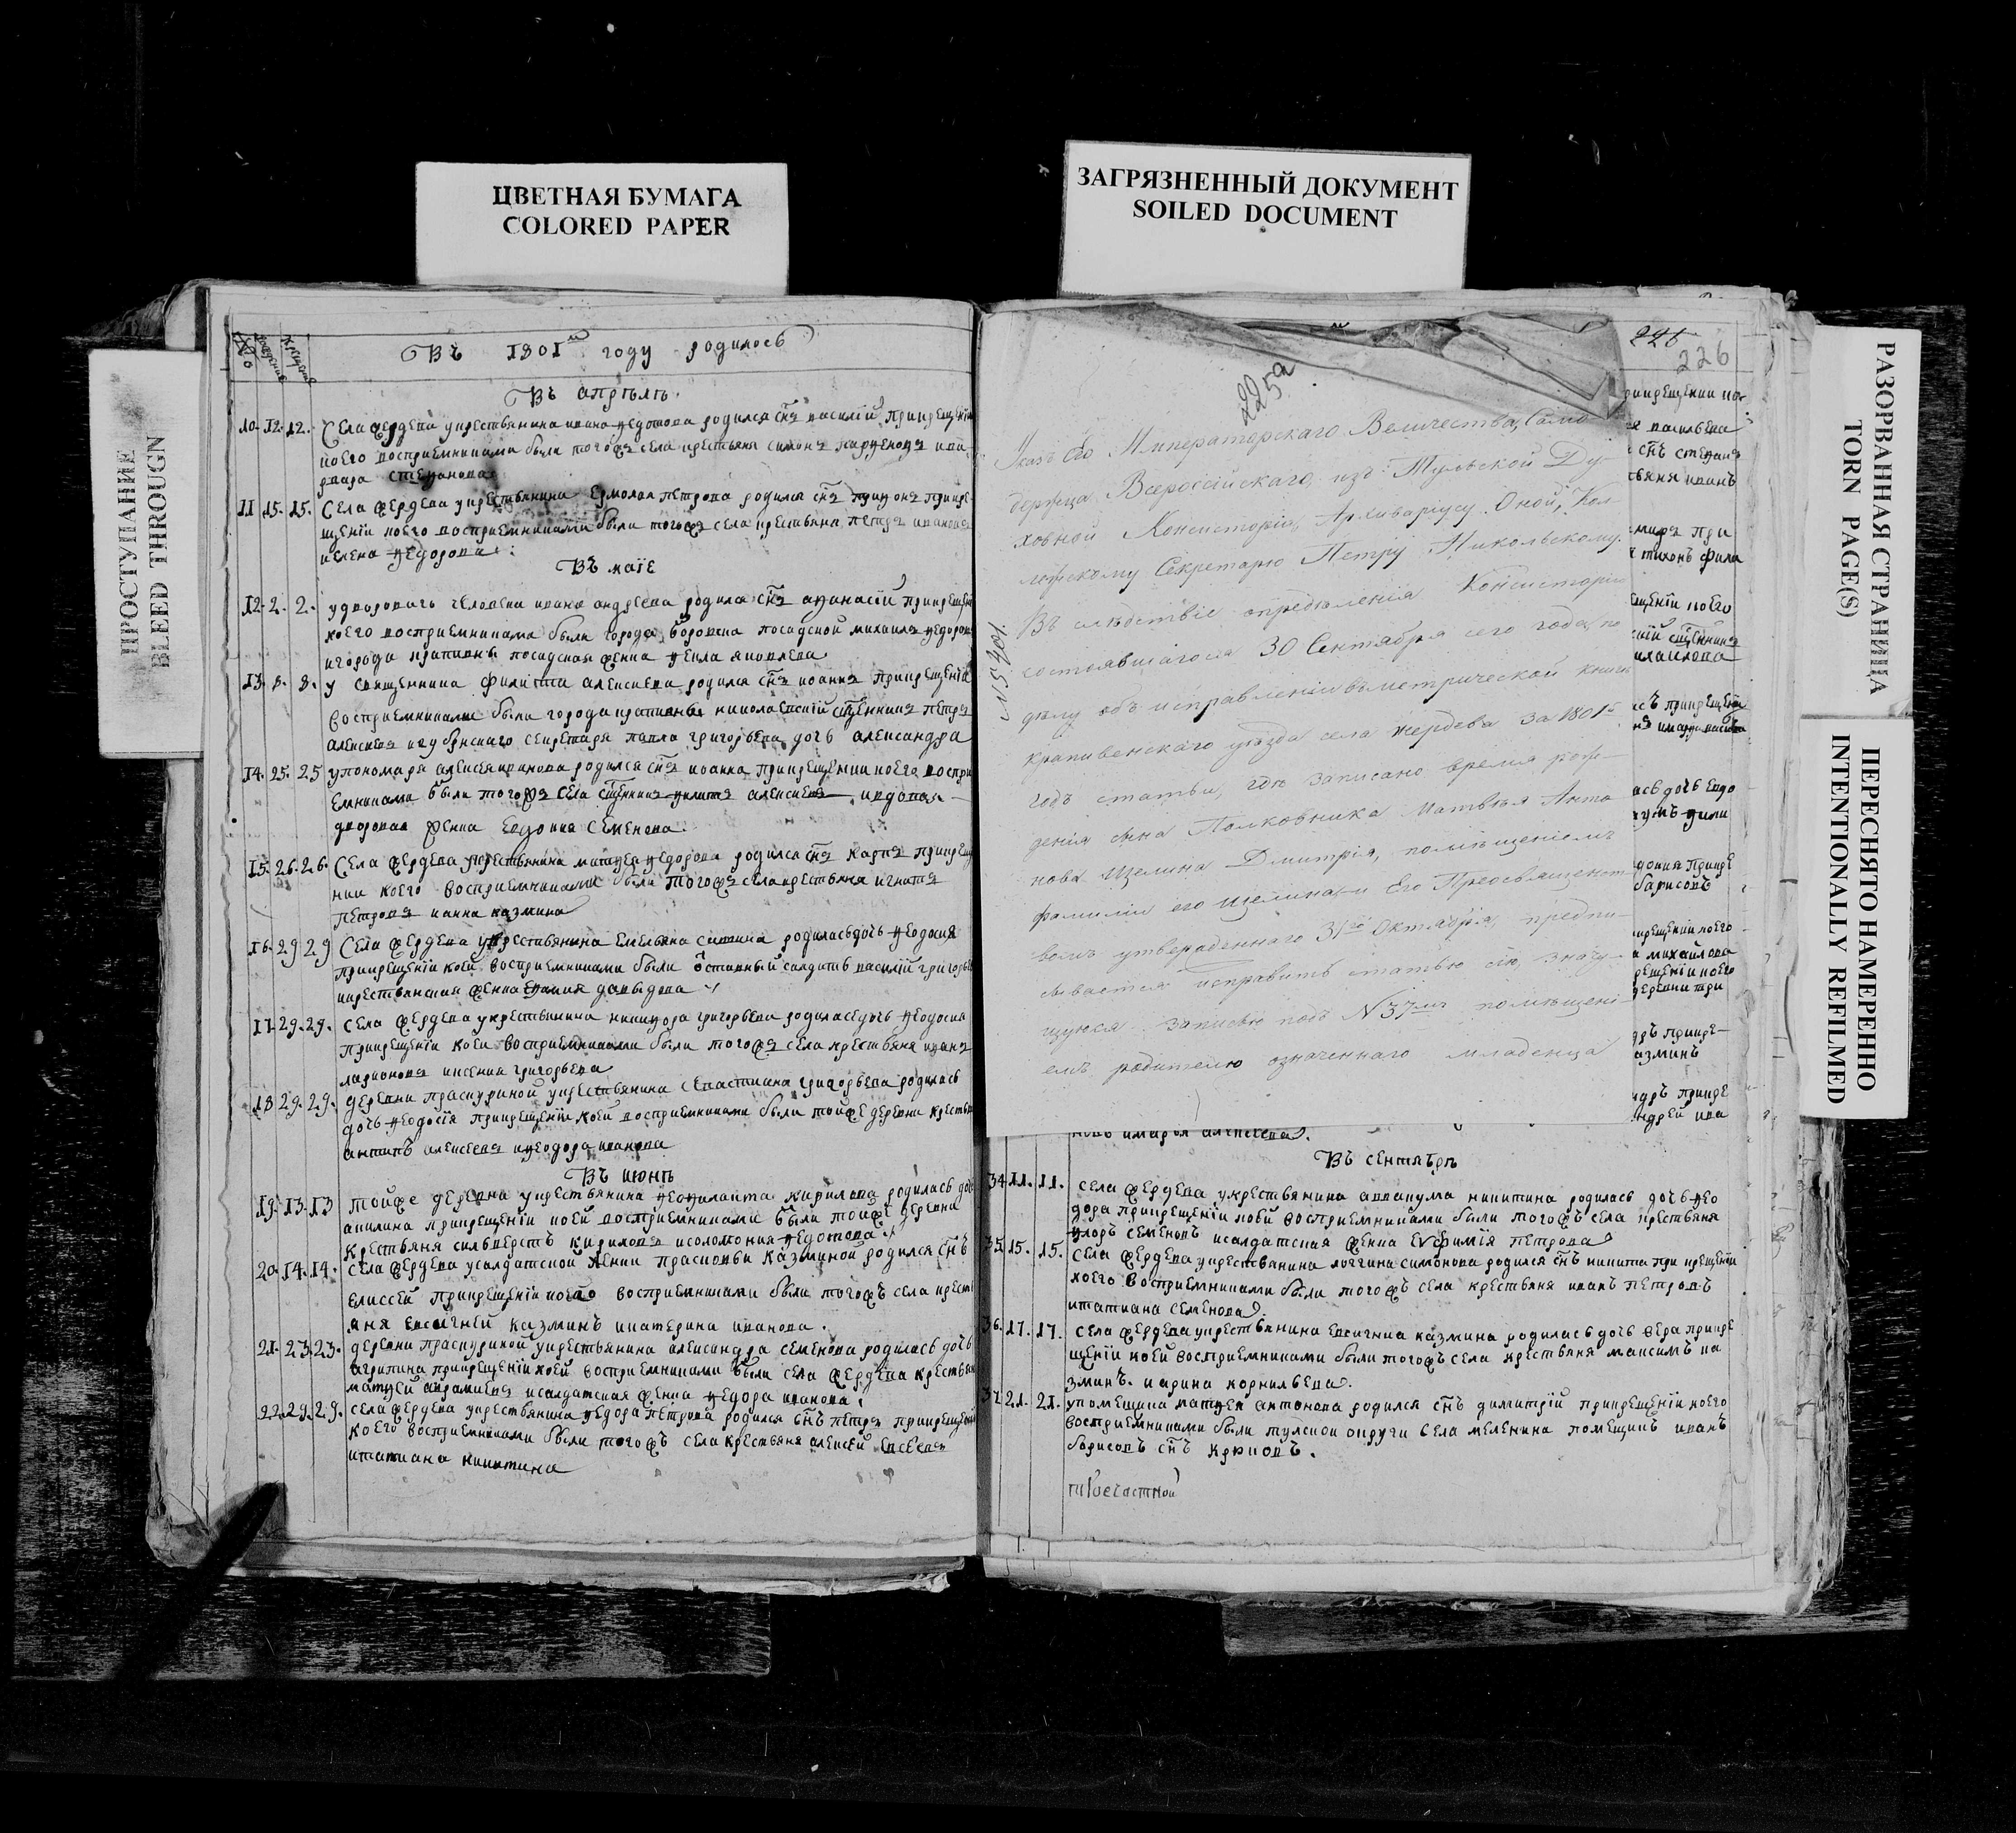 ЦВЕТНАЯ БУМАГА
COLORED PAPER
ЗАГРЯЗНЕННЫЙ ДОКУМЕНТ
SOILED DOCUMENT
ПРОСТУПАНИЕ
BLEED THROUGN
РАЗОРВАННАЯ СТРАНИЦА
TORN PAGE(S)
ПЕРЕСНЯТО НАМЕРЕННО
INTENTIONALLY REFILMED
Въ 1801м году родилось
Въ апрѣлѣ
10. 12. 12. Села жердева у крестьянина ивана федотова родился сн҃ъ василий при крещении
коего восприемниками были тогожъ села крестьяня симонъ парфеновъ
степанова
11. 15. 15. Села жердева у крестьянина Ермолая петрова родился сн҃ъ при кре
щении коего восприемниками были тогожъ села крестьяня петръ ивановъ
и елена федорова
Въ маiе
12. 2. 2. у дворового человека ивана андреева родился сн҃ъ афанасий при крещении
коего восприемниками были города посадской михаила федоров
и города крапивны посадская женка фекла яковлева
13. 8. 8. у священника филиппа алексиева родился сн҃ъ иоаннъ при крещении
восприемниками были города крапивны николаевский петръ
алексиевъ секретаря павла григорьева дочь александра
14. 25. 25 у пономаря алексея иванова родился сн҃ъ иоаннъ при крещении коего воспри
емниками были тогожъ села алексиевъ и вдовая
дворовая женка Евдокия Семенова
15. 26. 26. Села жердева у крестьянина матфея федорова родился сн҃ъ карпъ при креще
нии коего восприемниками были тогожъ села крестьяня игнатъ
петровъ и анна казмина
16. 29 29 Села жердева у крестьянина Емельяна родилась дочь феодосия
при крещении коей восприемниками были отставный салдатъ василий григорьевъ
и крестьянская женка давыдова
17. 29. 29. Села жердева у крестьянина никифора григорьева родилась дочь феодосия
при крещении коей восприемниками были тогожъ села крестьяня иванъ
ларионовъ и ксения григорьева
18 29. 29. деревни праскуриной у крестьянина севастиана григорьева родилась
дочь феодосия при крещении коей восприемниками были тойже деревни крестьяня
антипъ алексеевъ и феодора иванова
Въ июнѣ
19. 13. 13 тойже деревни у крестьянина феофилакта кирилова родилась дочь
акилина при крещении коей восприемниками были тойже деревни
крестьяня сильверстъ кириловъ и соломония федотова
20. 14. 14. Села жердева у салдатской женки прасковьи казминой родился сн҃ъ
елиссей при крещении коего восприемниками были тогожъ села кресть
яня евсигней казминъ и катерина иванова.
21. 23. 23. деревни праскуриной у крестьянина александра семенова родилась дочь
агрипина при крещении коей восприемниками были села жердева крестьяня
матфей авramиевъ и салдатская женка федора иванова
22. 29. 29. Села жердева у крестьянина федора петрова родился сн҃ъ петръ при крещении
коего восприемниками были тогожъ села крестьяня алексей евсеевъ
и татиана никитина
226
225а
Указъ Его Императорскаго Величества, Само
держца Всероссiйскаго, изъ Тульской Ду
ховной Консисторiи, Архиварiусу Оной, Кол
лежскому Секретарю Петру Никольскому.
Въ слѣдствiе опредѣленiя Консисторiи
состоявшагося 30 Сентября сего года, по
дѣлу объ исправленiи въ метрической книгѣ
крапивенскаго уѣзда села жердева за 1801й
годъ статьи, гдѣ записано время рож
денiя сына Полковника Матвѣя Анто
нова Щелина Дмитрiя, помѣщенiемъ
фамилiи его Щелинъ и Его Преосвященст
вомъ утвержденнаго 31го Октября, предпи
сывается исправить статью сiю, значу
щуюся записью подъ N 37мъ помѣщенi
емъ родителю означеннаго младенца
N 5701.
новъ и марья алексеева.
Въ сентябрѣ
34 11. 11. Села жердева у крестьянина аввакума никитина родилась дочь фео
дора при крещении коей восприемниками были тогожъ села крестьяня
флоръ семеновъ и салдатская женка Евфимия петрова
35 15. 15. Села жердева у крестьянина логгина симонова родился сн҃ъ никита при крещении
коего восприемниками были тогожъ села крестьяня иванъ петровъ
и татиана семенова.
36. 17. 17. Села жердева у крестьянина Евсигния казмина родилась дочь вера при кре
щении коей восприемниками были тогожъ села крестьяня максимъ ка
зминъ и арина корнильева.
37 21. 21. у помещика матфея антонова родился сн҃ъ димитрий при крещении коего
восприемниками были тулской округи села меленина помещикъ иванъ
борисовъ сн҃ъ крюковъ.